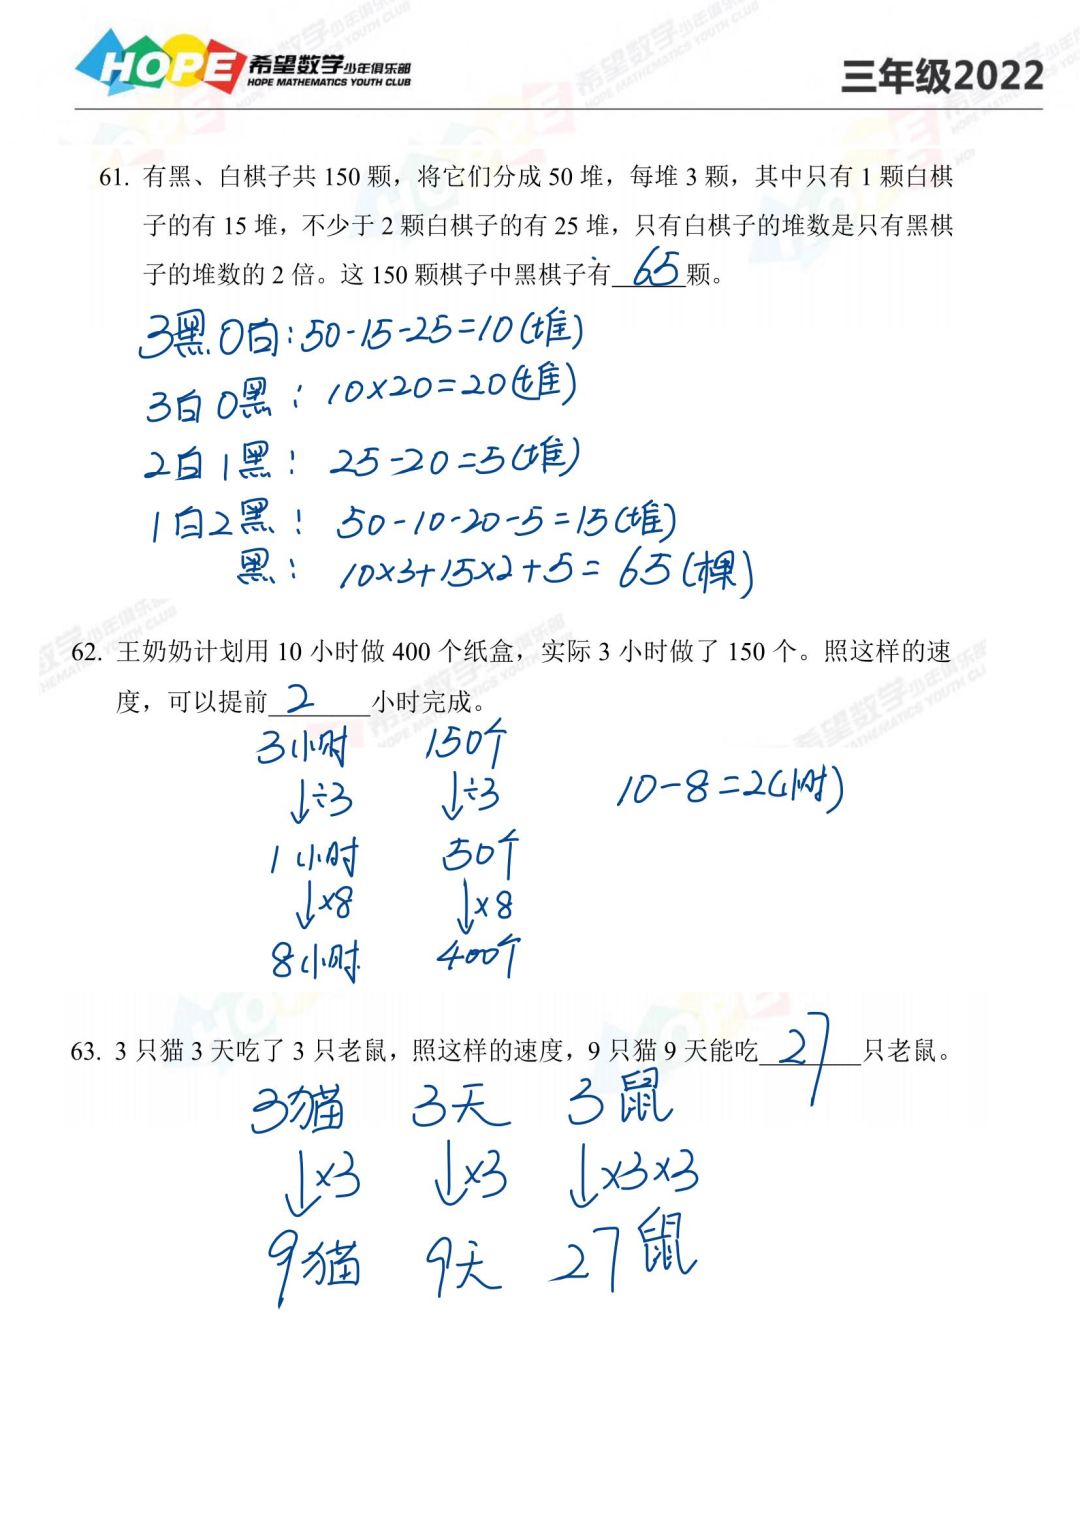 HOPE 希望数学少年俱乐部
HOPE MATHEMATICS YOUTH CLUB
三年级2022
61. 有黑、白棋子共 150 颗，将它们分成 50 堆，每堆 3 颗，其中只有 1 颗白棋
子的有 15 堆，不少于 2 颗白棋子的有 25 堆，只有白棋子的堆数是只有黑棋
子的堆数的 2 倍。这 150 颗棋子中黑棋子有 65 颗。
3黑0白：50-15-25=10(堆)
3白0黑：10×20=20(堆)
2白1黑：25-20=5(堆)
1白2黑：50-10-20-5=15(堆)
黑：10×3+15×2+5=65(棵)
62. 王奶奶计划用 10 小时做 400 个纸盒，实际 3 小时做了 150 个。照这样的速
度，可以提前 2 小时完成。
3小时 150个
↓÷3 ↓÷3 10-8=2(小时)
1小时 50个
↓×8 ↓×8
8小时 400个
63. 3 只猫 3 天吃了 3 只老鼠，照这样的速度，9 只猫 9 天能吃 27 只老鼠。
3猫 3天 3鼠
↓×3 ↓×3 ↓×3×3
9猫 9天 27鼠